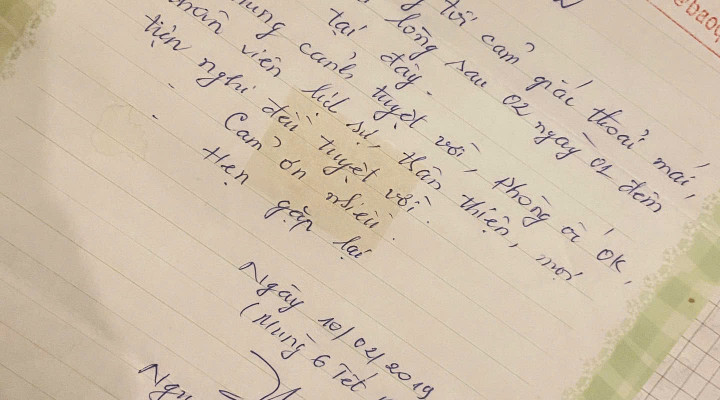 tôi cảm giác thoải mái,
lòng sau 02 ngày 01 đêm
tại đây.
cảnh tuyệt vời, phòng ở ok,
nhân viên lịch sự, thân thiện, mọi
tiện nghi đều tuyệt vời.
- Cảm ơn nhiều.
- Hẹn gặp lại
Ngày 10/02/2019
(Mùng 6 Tết